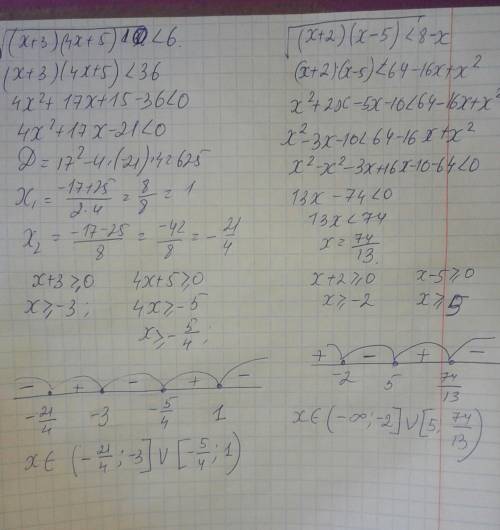 √(x+3)(4x+5) < 6.
(x+3)(4x+5) < 36
4x² + 17x + 15 - 36 < 0
4x² + 17x - 21 < 0
D = 17² - 4·(-21)·4 = 625
x₁ = (-17+25)/(2·4) = 8/8 = 1
x₂ = (-17-25)/8 = -42/8 = -21/4
x+3 ≥ 0 4x+5 ≥ 0
x ≥ -3; 4x ≥ -5
x ≥ -5/4;
- + - + -
-21/4 -3 -5/4 1
x ∈ (-21/4; -3] ∪ [-5/4; 1)
√(x+2)(x-5) < 8-x
(x+2)(x-5) < 64 - 16x + x²
x² + 2x - 5x - 10 < 64 - 16x + x²
x² - 3x - 10 < 64 - 16x + x²
x² - x² - 3x + 16x - 10 - 64 < 0
13x - 74 < 0
13x < 74
x = 74/13.
x+2 ≥ 0 x-5 ≥ 0
x ≥ -2 x ≥ 5
+ - + -
-2 5 74/13
x ∈ (-∞; -2] ∪ [5; 74/13)